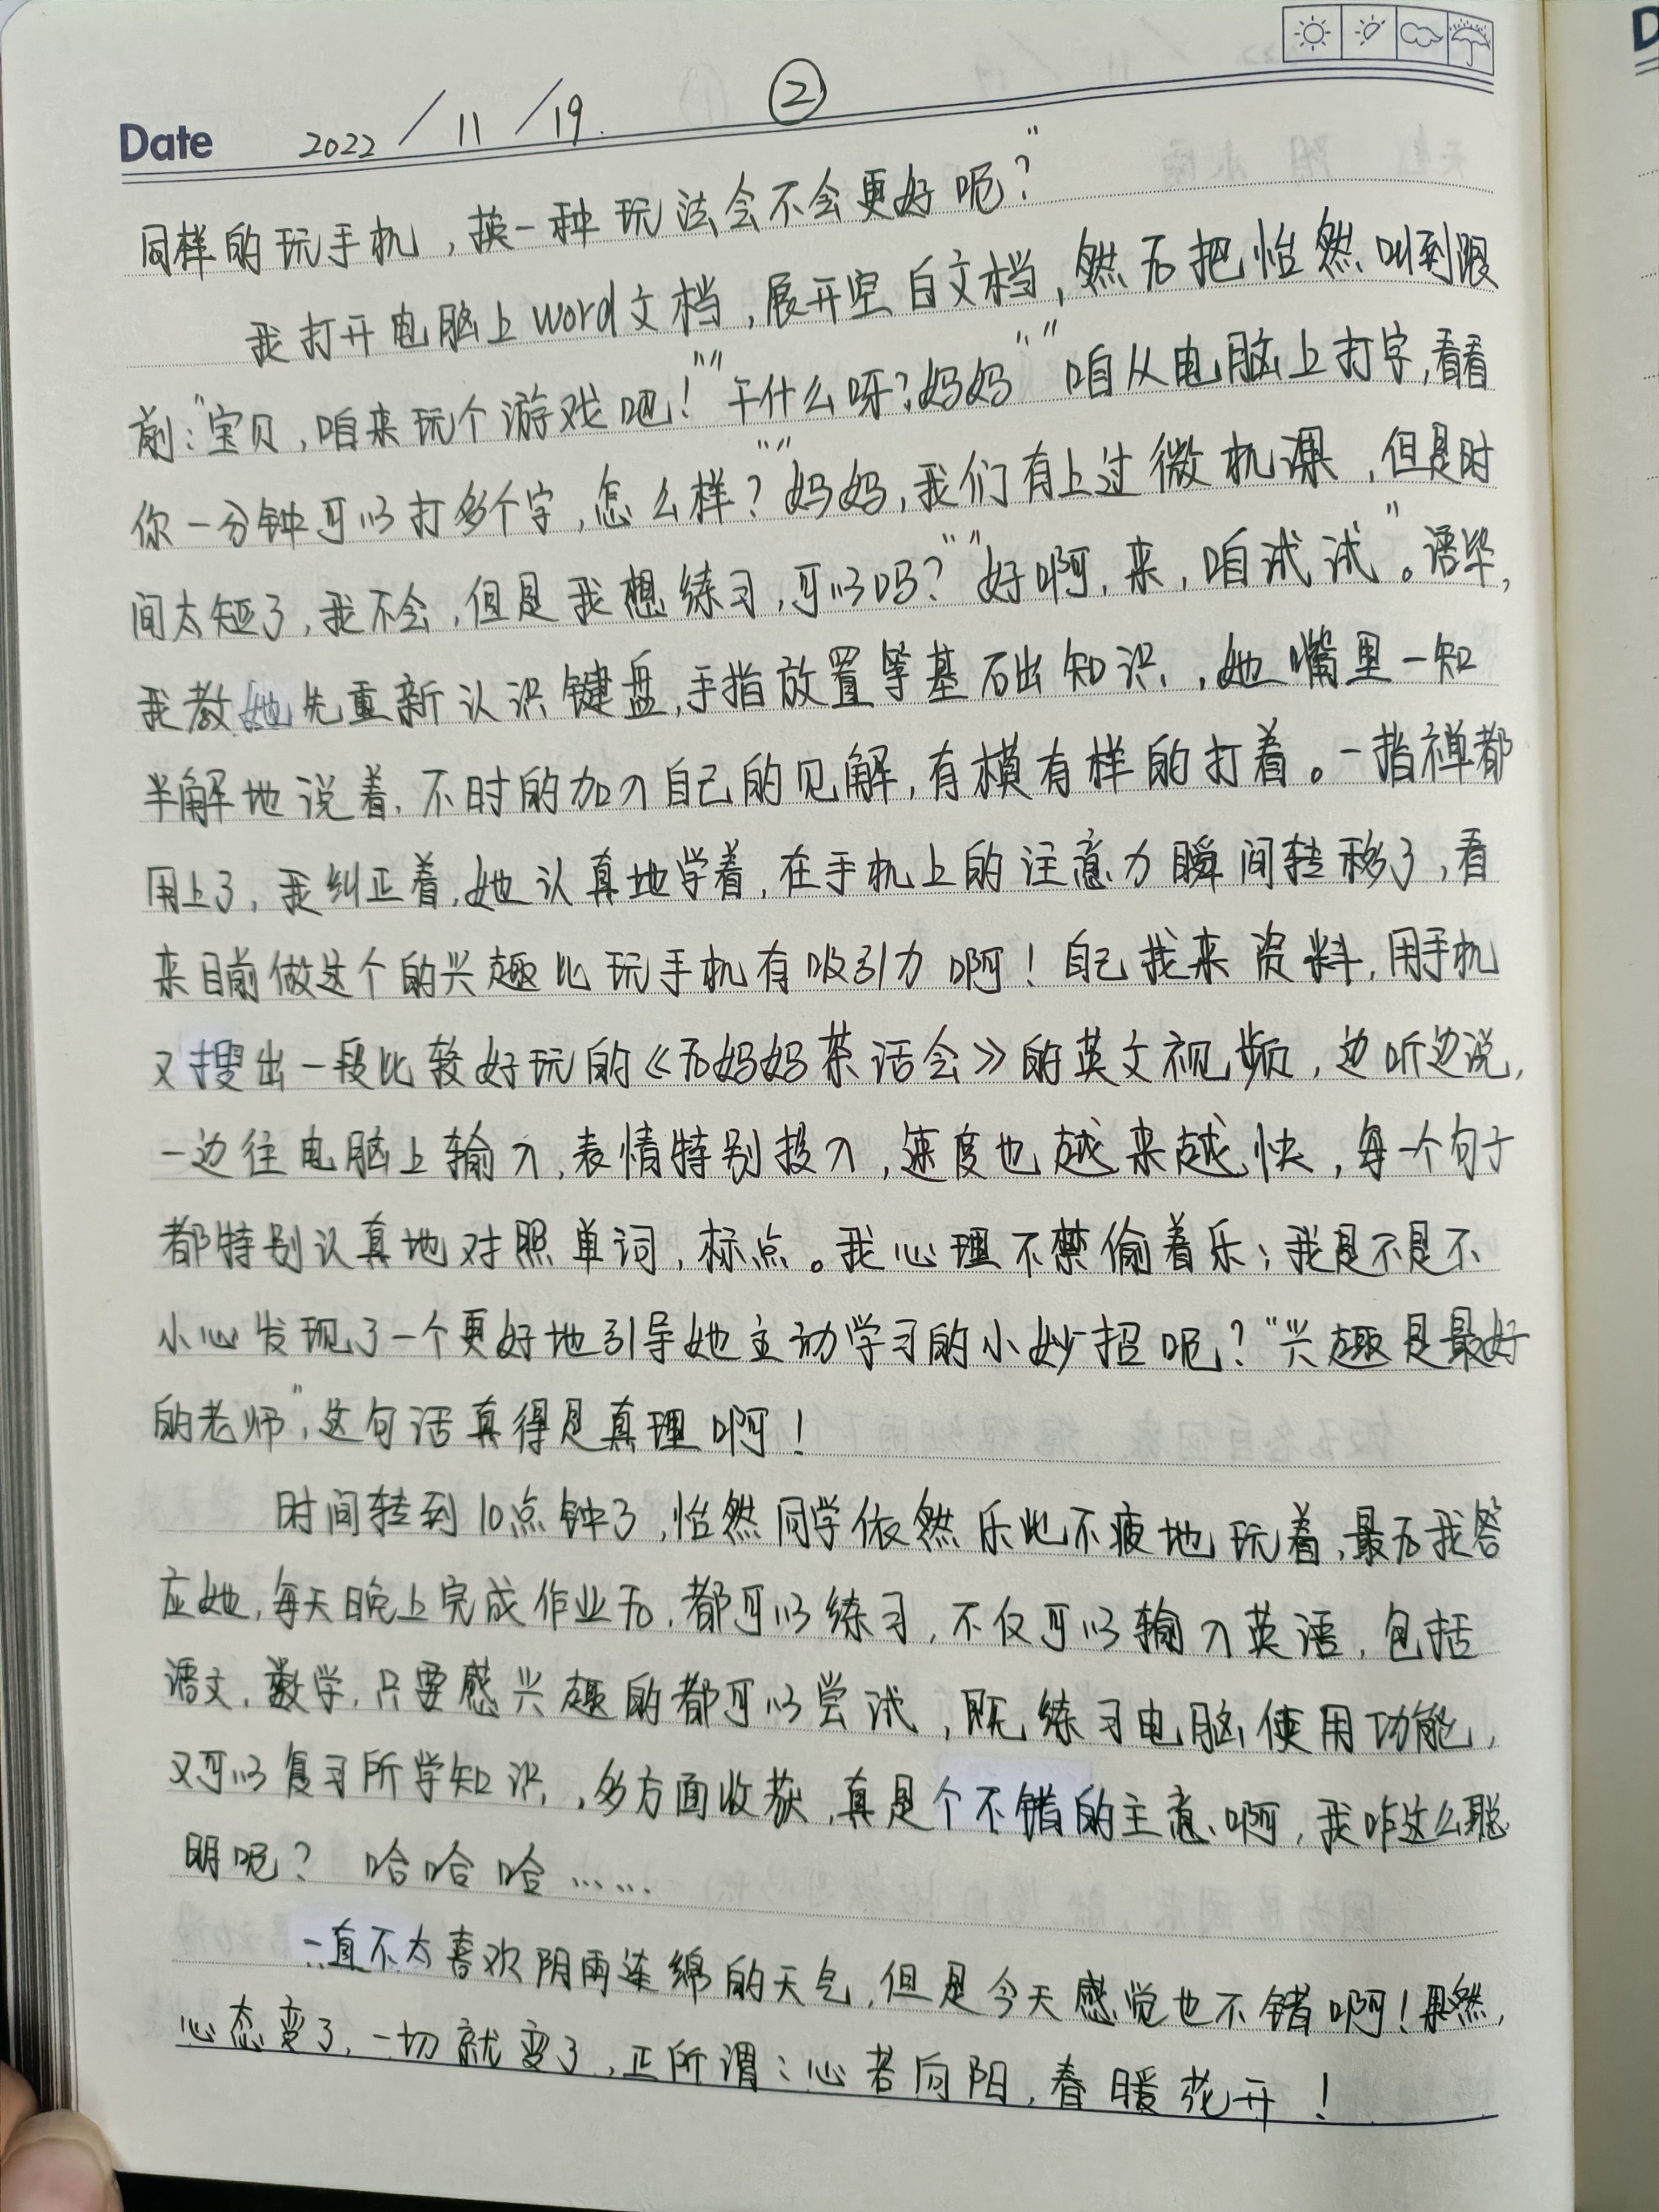 Date 2022/11/19. ②
同样的玩手机，换一种玩法会不会更好呢？”
我打开电脑上word文档，展开空白文档，然后把怡然叫到跟
前：“宝贝，咱来玩个游戏吧！”“干什么呀？妈妈”“咱从电脑上打字，看看
你一分钟可以打多个字，怎么样？”“妈妈，我们有上过微机课，但是时
间太短了，我不会，但是我想练习，可以吗？”“好啊，来，咱试试”。语毕，
我教她先重新认识键盘，手指放置等基础知识，她嘴里一知
半解地说着，不时的加入自己的见解，有模有样的打着。一指禅都
用上了，我纠正着，她认真地学着，在手机上的注意力瞬间转移了，看
来目前做这个的兴趣比玩手机有吸引力啊！自己找来资料，用手机
又搜出一段比较好玩的《后妈妈茶话会》的英文视频，边听边说，
一边往电脑上输入，表情特别投入，速度也越来越快，每一个句子
都特别认真地对照单词，标点。我心理不禁偷着乐；我是不是不
小心发现了一个更好地引导她主动学习的小妙招呢？“兴趣是最好
的老师”，这句话真得是真理啊！
时间转到10点钟了，怡然同学依然乐此不疲地玩着，最后我答
应她，每天晚上完成作业后，都可以练习，不仅可以输入英语，包括
语文，数学，只要感兴趣的都可以尝试，既练习电脑使用功能，
又可以复习所学知识，多方面收获，真是个不错的主意啊，我咋这么聪
明呢？ 哈哈哈……
一直不太喜欢阴雨连绵的天气，但是今天感觉也不错啊！果然，
心态变了，一切就变了，正所谓：心若向阳，春暖花开！